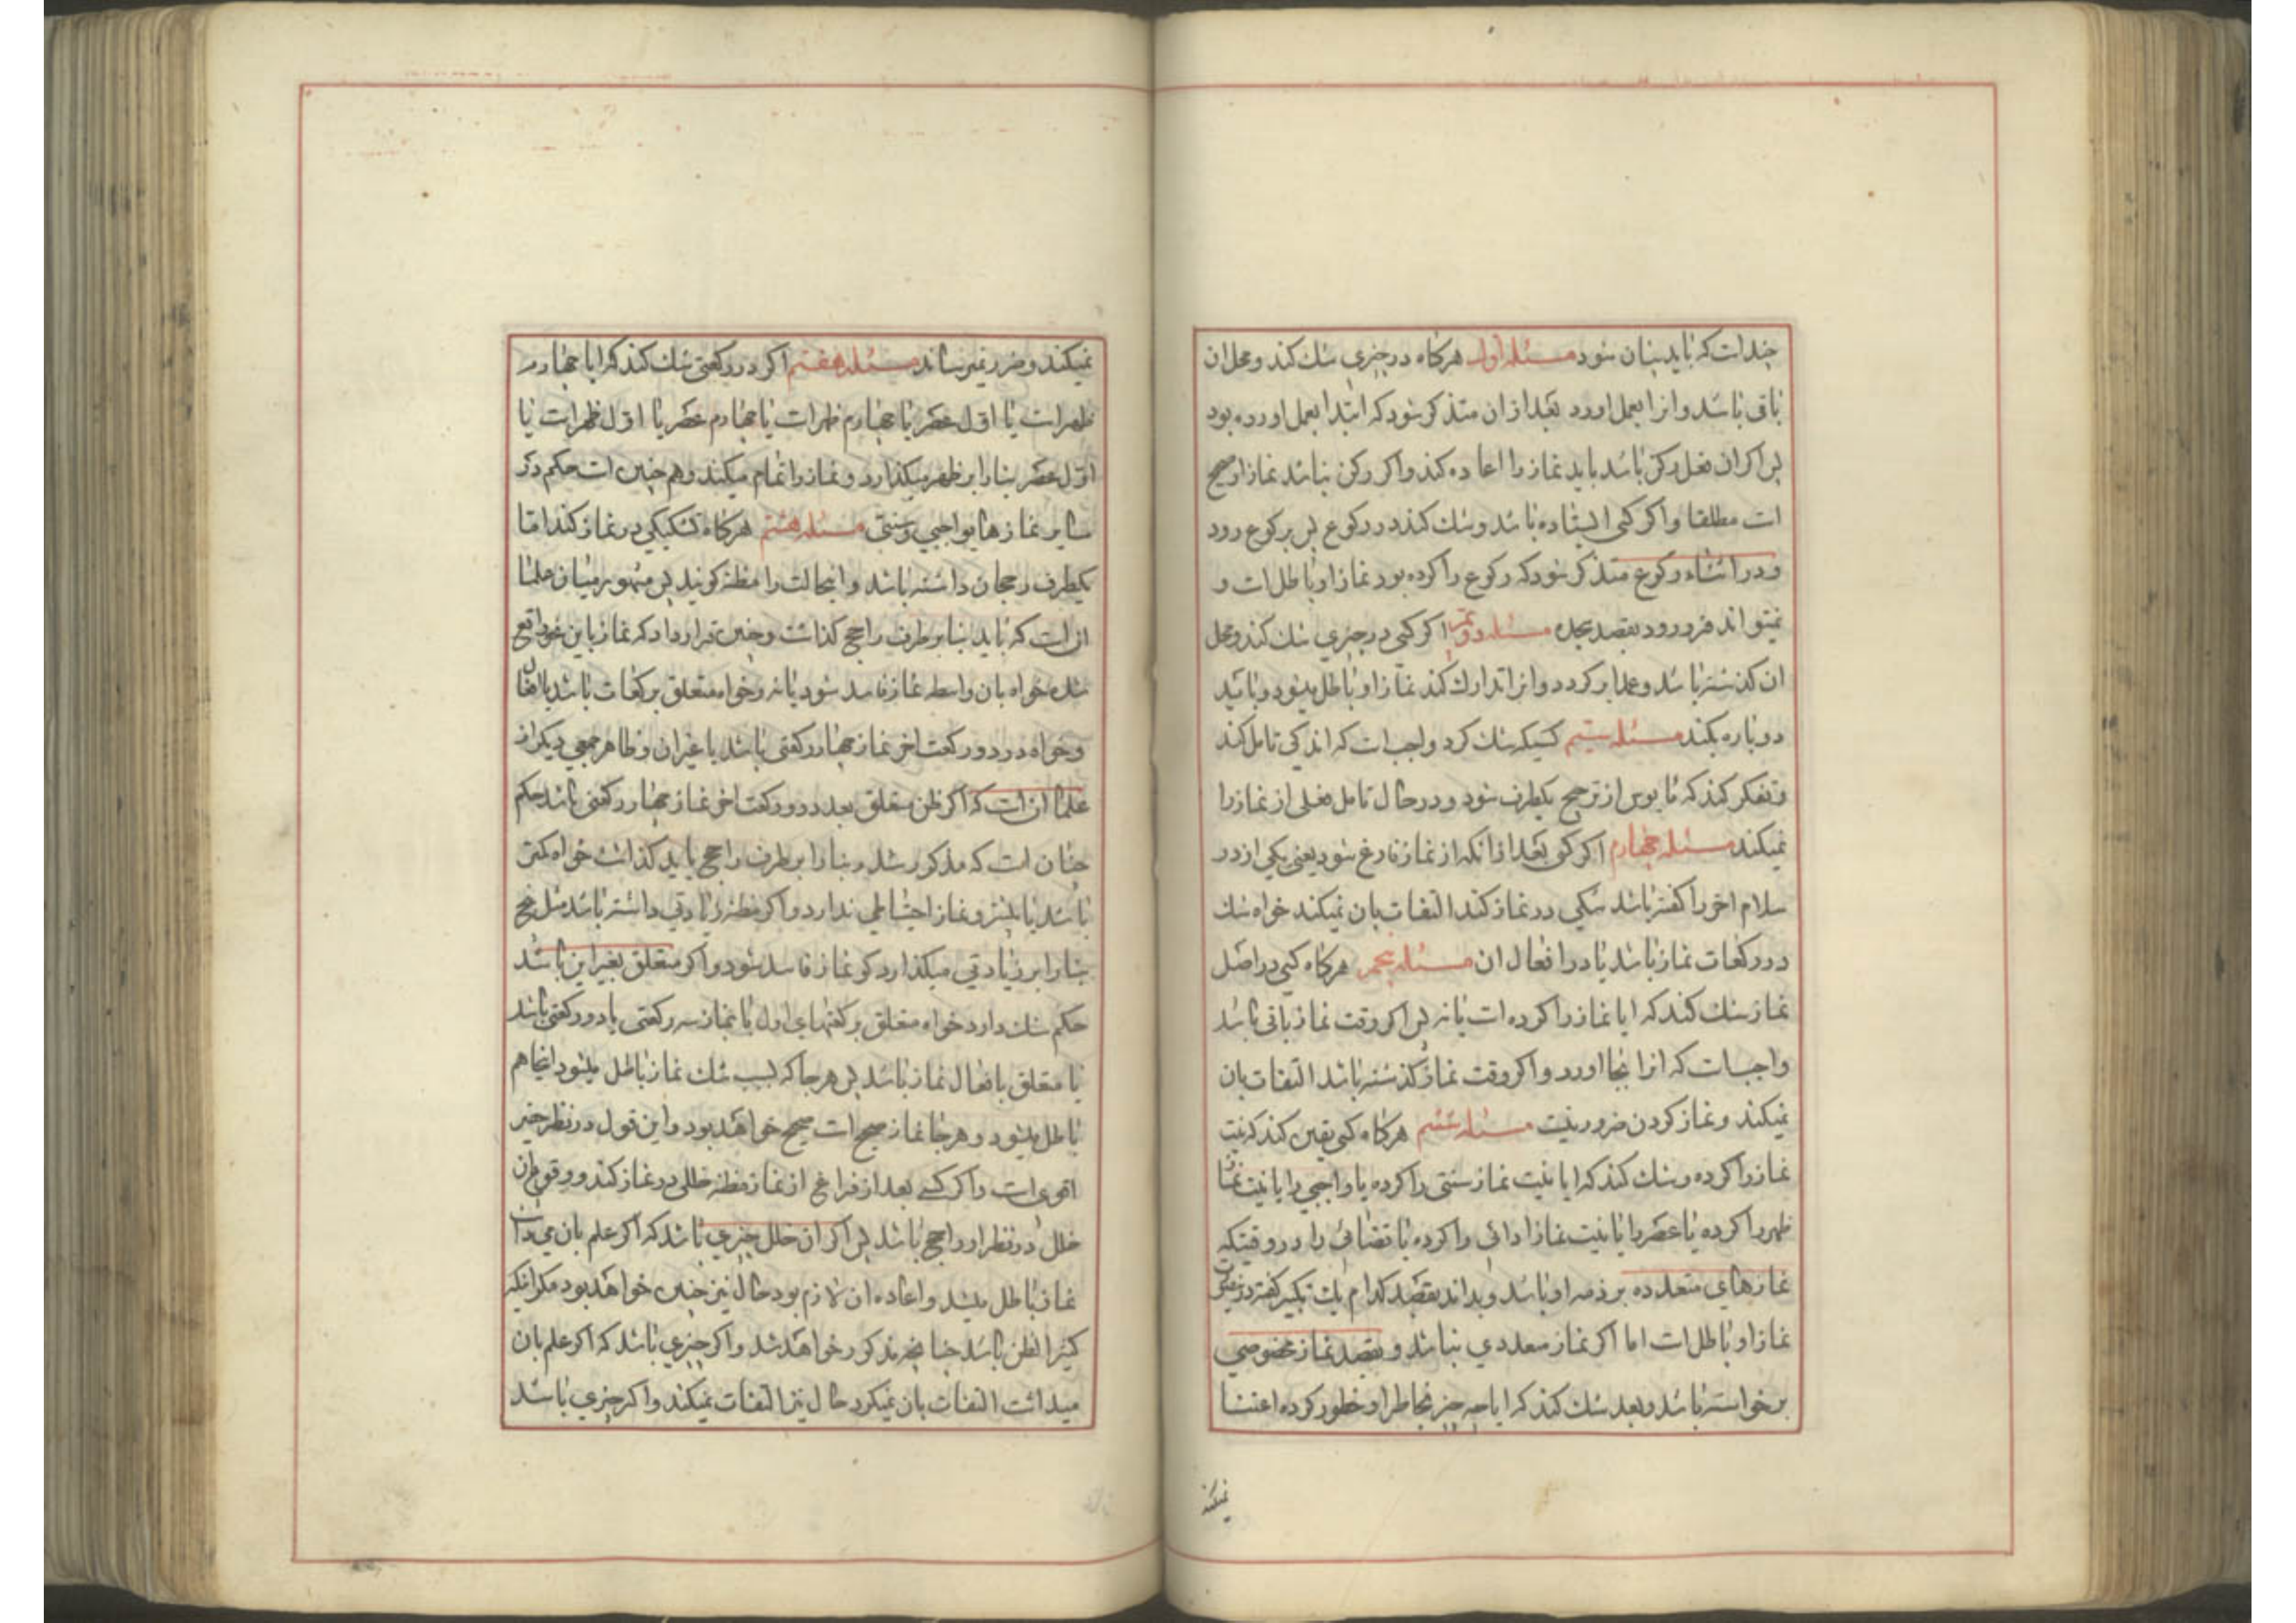 چند است که باید بیان شود مسئله اول هرکاه در چیزی شك کند و محل ان
باقی باشد و انرا بعمل اورد بعد از ان متذکر شود که ابتدا بعمل اورده بود
پس اکر ان فعل رکن باشد باید نماز را اعاده کند و اکر رکن نباشد نماز او صحیح
است مطلقا و اکر کسی ایستاده باشد و شك کند در رکوع پس برکوع رود
و در اثناء رکوع متذکر شود که رکوع را کرده بود نماز او باطل است و
نمیتواند فرو رود بقصد سجده مسئله دوم اکر کسی در چیزی شك کند و محل
ان کذشته باشد و عمدا بر کردد و انرا تدارك کند نماز او باطل میشود و باید
دوباره بکند مسئله سیم کسیکه شك کرد واجب است که اندکی تامل کند
و تفکر کند که مایوس از ترجیح یکطرف شود و در حال تامل فعلی از نماز را
نمیکند مسئله چهارم اکر کسی بعد از انکه از نماز فارغ شود یعنی یکی از دو
سلام اخر را کفته باشد شکی در نماز کند التفات بان نمیکند خواه شك
در رکعات نماز باشد یا در افعال ان مسئله پنجم هرکاه کسی در اصل
نماز شك کند که ایا نماز را کرده است یا نه پس اکر وقت نماز باقی باشد
واجب است که انرا بجا اورد و اکر وقت نماز کذشته باشد التفات بان
نمیکند و نماز کردن ضرور نیست مسئله ششم هرکاه کسی یقین کند که نیت
نماز را کرده و شك کند که ایا نیت نماز سنتی را کرده یا واجبی را یا نیت نماز
ظهر را کرده یا عصر را یا نیت نماز ادائی را کرده یا قضائی را در وقتیکه
نمازهای متعدده بر ذمه او باشد و بداند بقصد کدام یك تکبیر کفته
نماز او باطل است اما اکر نماز متعددی نباشد و بقصد نماز مخصوصی
برخواسته باشد و بعد شك کند که ایا چه چیز بخاطر او خطور کرده اعتنا
نمیکند
نمیکند و ضرر نمیرساند مسئله هفتم اکر در رکعتی شك کند که ایا چهارم
ظهر است یا اول عصر یا چهارم ظهر است یا چهارم عصر یا اول ظهر است یا
اول عصر بنا را بر ظهر میکذارد و نماز را تمام میکند و هم چنین است حکم در
سایر نمازهای واجبی و سنتی مسئله هشتم هرکاه تشکیکی در نماز کند اما
یکطرف رجحان داشته باشد و اینحالت را مظنه کویند پس مشهور میان علما
ان است که باید بنا بر طرف راجح کذاشت و چنین قرار داد که نماز باین نحو واقع
شده خواه بان واسطه نماز فاسد شود یا نه و خواه متعلق برکعات باشد یا افعال
و خواه در دو رکعت اخر نماز چهار رکعتی باشد یا غیر ان و ظاهر جمعی دیکر از
علما ان است که اکر ظن متعلق بعدد دو رکعت اخر نماز چهار رکعتی باشد حکم
چنان است که مذکور شد و بنا را بر طرف راجح باید کذاشت خواه کمتر
باشد یا بیشتر و نماز احتیاطی ندارد و اکر مظنه زیادتی داشته باشد مثل پنج
بنا را بر زیادتی میکذارد کو نماز فاسد شود و اکر متعلق بغیر این باشد
حکم شك دارد خواه متعلق برکعتهای اول یا نماز سه رکعتی یا دو رکعتی باشد
یا متعلق بافعال نماز باشد پس هر جا که بسبب شك نماز باطل میشود اینجا هم
باطل میشود و هر جا نماز صحیح است صحیح خواهد بود و این قول در نظر حقیر
اقوی است و اکر کسی بعد از فراغ از نماز مظنه خللی در نماز کند و وقوع ان
خلل در نظر او راجح باشد پس اکر ان خلل چیزی باشد که اکر علم بان میداشت
نماز باطل میشد و اعاده ان لازم بود حال نیز چنین خواهد بود مکر انکه
کثیر الظن باشد چنانچه مذکور خواهد شد و اکر چیزی باشد که اکر علم بان
میداشت التفات بان نمیکرد حال نیز التفات نمیکند و اکر چیزی باشد